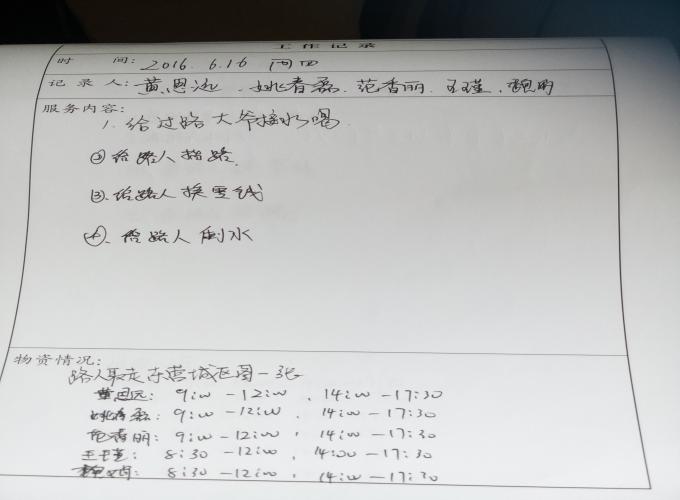 工作记录
时 间: 2016. 6.16 周四
记录人: 黄恩远. 姚春磊. 范香丽. 王瑾.
服务内容:
1. 给过路大爷接水喝.
② 给路人指路.
③. 给路人换零钱
④. 给路人倒水
物资情况:
路人取走东营城区图一张
黄恩远: 9:00 - 12:00 . 14:00 - 17:30
姚春磊: 9:00 - 12:00 . 14:00 - 17:30
范香丽: 9:00 - 12:00 , 14:00 - 17:30
王瑾: 8:30 - 12:00 , 14:00 - 17:30
8:30 - 12:00 , 14:00 - 17:30